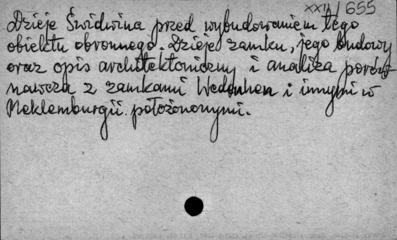 XXIV/655
Dzieje Świdwina przed wybudowaniem tego
obiektu obronnego. Dzieje zamku, jego budowy
oraz opis architektoniczny i analiza porów-
nawcza z zamkami Wedenhen i innymi w
Meklemburgii położonymi.